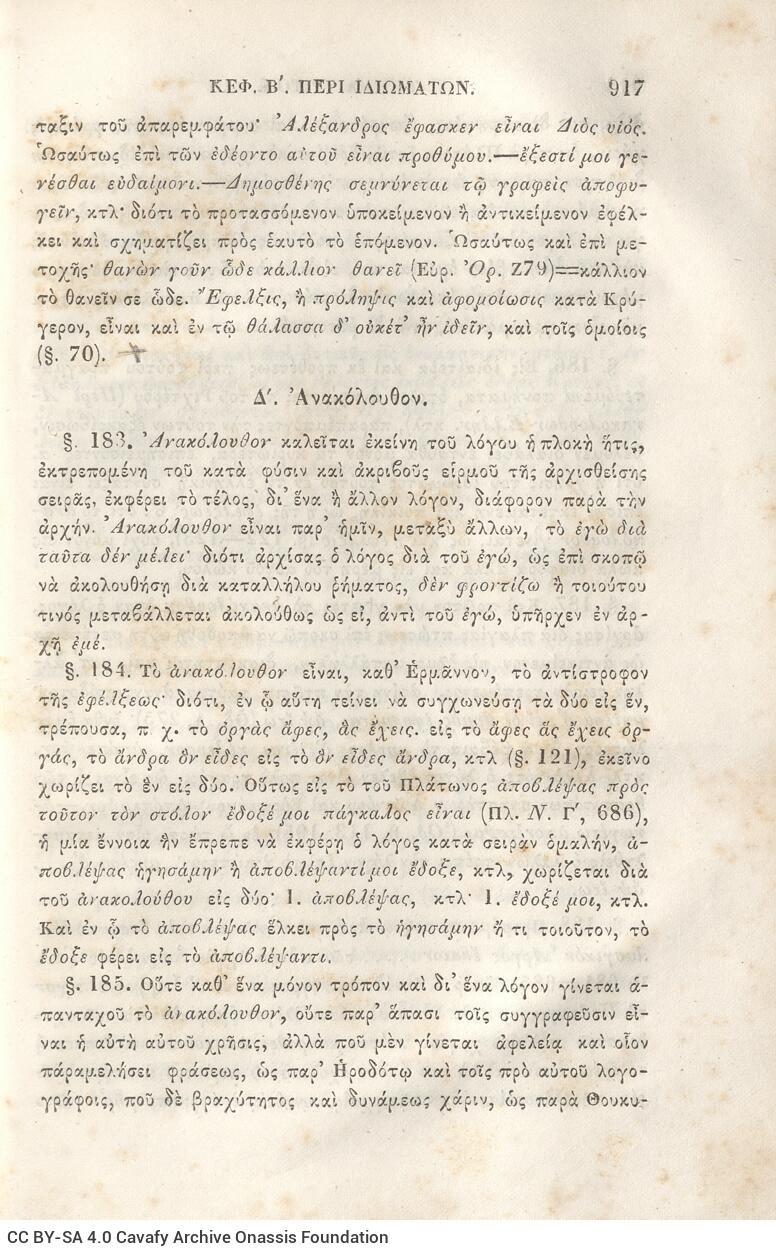 ΚΕΦ. Β′. ΠΕΡΙ ΙΔΙΩΜΑΤΩΝ. 917
ταξιν τοῦ ἀπαρεμφάτου· Ἀλέξανδρος ἔφασκεν εἶναι Διὸς υἱός.
Ὡσαύτως ἐπὶ τῶν ἐδέοντο αὐτοῦ εἶναι προθύμου.—ἔξεστί μοι γε-
νέσθαι εὐδαίμονι.—Δημοσθένης σεμνύνεται τῷ γραφεὶς ἀποφυ-
γεῖν, κτλ· διότι τὸ προτασσόμενον ὑποκείμενον ἢ ἀντικείμενον ἐφέλ-
κει καὶ σχηματίζει πρὸς ἑαυτὸ τὸ ἑπόμενον. Ὡσαύτως καὶ ἐπὶ με-
τοχῆς· θανὼν γοῦν ὧδε κάλλιον θανεῖ (Εὐρ. Ὀρ. Ζ79)==κάλλιον
τὸ θανεῖν σε ὧδε. Ἔφελξις, ἢ πρόληψις καὶ ἀφομοίωσις κατὰ Κρύ-
γερον, εἶναι καὶ ἐν τῷ θάλασσα δ' οὐκέτ' ἦν ἰδεῖν, καὶ τοῖς ὁμοίοις
(§. 70).
Δ′. Ἀνακόλουθον.
§. 183. Ἀνακόλουθον καλεῖται ἐκείνη τοῦ λόγου ἡ πλοκὴ ἥτις,
ἐκτρεπομένη τοῦ κατὰ φύσιν καὶ ἀκριβοῦς εἱρμοῦ τῆς ἀρχισθείσης
σειρᾶς, ἐκφέρει τὸ τέλος, δι' ἕνα ἢ ἄλλον λόγον, διάφορον παρὰ τὴν
ἀρχήν. Ἀνακόλουθον εἶναι παρ' ἡμῖν, μεταξὺ ἄλλων, τὸ ἐγὼ διὰ
ταῦτα δέν μέλει· διότι ἀρχίσας ὁ λόγος διὰ τοῦ ἐγώ, ὡς ἐπὶ σκοπῷ
νὰ ἀκολουθήσῃ διὰ καταλλήλου ῥήματος, δὲν φροντίζω ἢ τοιούτου
τινὸς μεταβάλλεται ἀκολούθως ὡς εἰ, ἀντὶ τοῦ ἐγώ, ὑπῆρχεν ἐν ἀρ-
χῇ ἐμέ.
§. 184. Τὸ ἀνακόλουθον εἶναι, καθ' Ἑρμᾶννον, τὸ ἀντίστροφον
τῆς ἐφέλξεως· διότι, ἐν ᾧ αὕτη τείνει νὰ συγχωνεύσῃ τὰ δύο εἰς ἕν,
τρέπουσα, π χ. τὸ ὀργὰς ἄφες, ἃς ἔχεις. εἰς τὸ ἄφες ἃς ἔχεις ὀρ-
γάς, τὸ ἄνδρα ὃν εἶδες εἰς τὸ ὃν εἶδες ἄνδρα, κτλ (§. 121), ἐκεῖνο
χωρίζει τὸ ἓν εἰς δύο. Οὕτως εἰς τὸ τοῦ Πλάτωνος ἀποβλέψας πρὸς
τοῦτον τὸν στόλον ἔδοξέ μοι πάγκαλος εἶναι (Πλ. Ν. Γ′, 686),
ἡ μία ἔννοια ἣν ἔπρεπε νὰ ἐκφέρῃ ὁ λόγος κατὰ σειρὰν ὁμαλήν, ἀ-
ποβλέψας ἡγησάμην ἢ ἀποβλέψαντί μοι ἔδοξε, κτλ, χωρίζεται διὰ
τοῦ ἀνακολούθου εἰς δύο· 1. ἀποβλέψας, κτλ· 1. ἔδοξέ μοι, κτλ.
Καὶ ἐν ᾧ τὸ ἀποβλέψας ἕλκει πρὸς τὸ ἡγησάμην ἤ τι τοιοῦτον, τὸ
ἔδοξε φέρει εἰς τὸ ἀποβλέψαντι.
§. 185. Οὔτε καθ' ἕνα μόνον τρόπον καὶ δι' ἕνα λόγον γίνεται ἁ-
πανταχοῦ τὸ ἀνακόλουθον, οὔτε παρ' ἅπασι τοῖς συγγραφεῦσιν εἶ-
ναι ἡ αὐτὴ αὐτοῦ χρῆσις, ἀλλὰ ποῦ μὲν γίνεται ἀφελείᾳ καὶ οἷον
πάραμελήσει φράσεως, ὡς παρ' Ἡροδότῳ καὶ τοῖς πρὸ αὐτοῦ λογο-
γράφοις, ποῦ δὲ βραχύτητος καὶ δυνάμεως χάριν, ὡς παρὰ Θουκυ-
CC BY-SA 4.0 Cavafy Archive Onassis Foundation